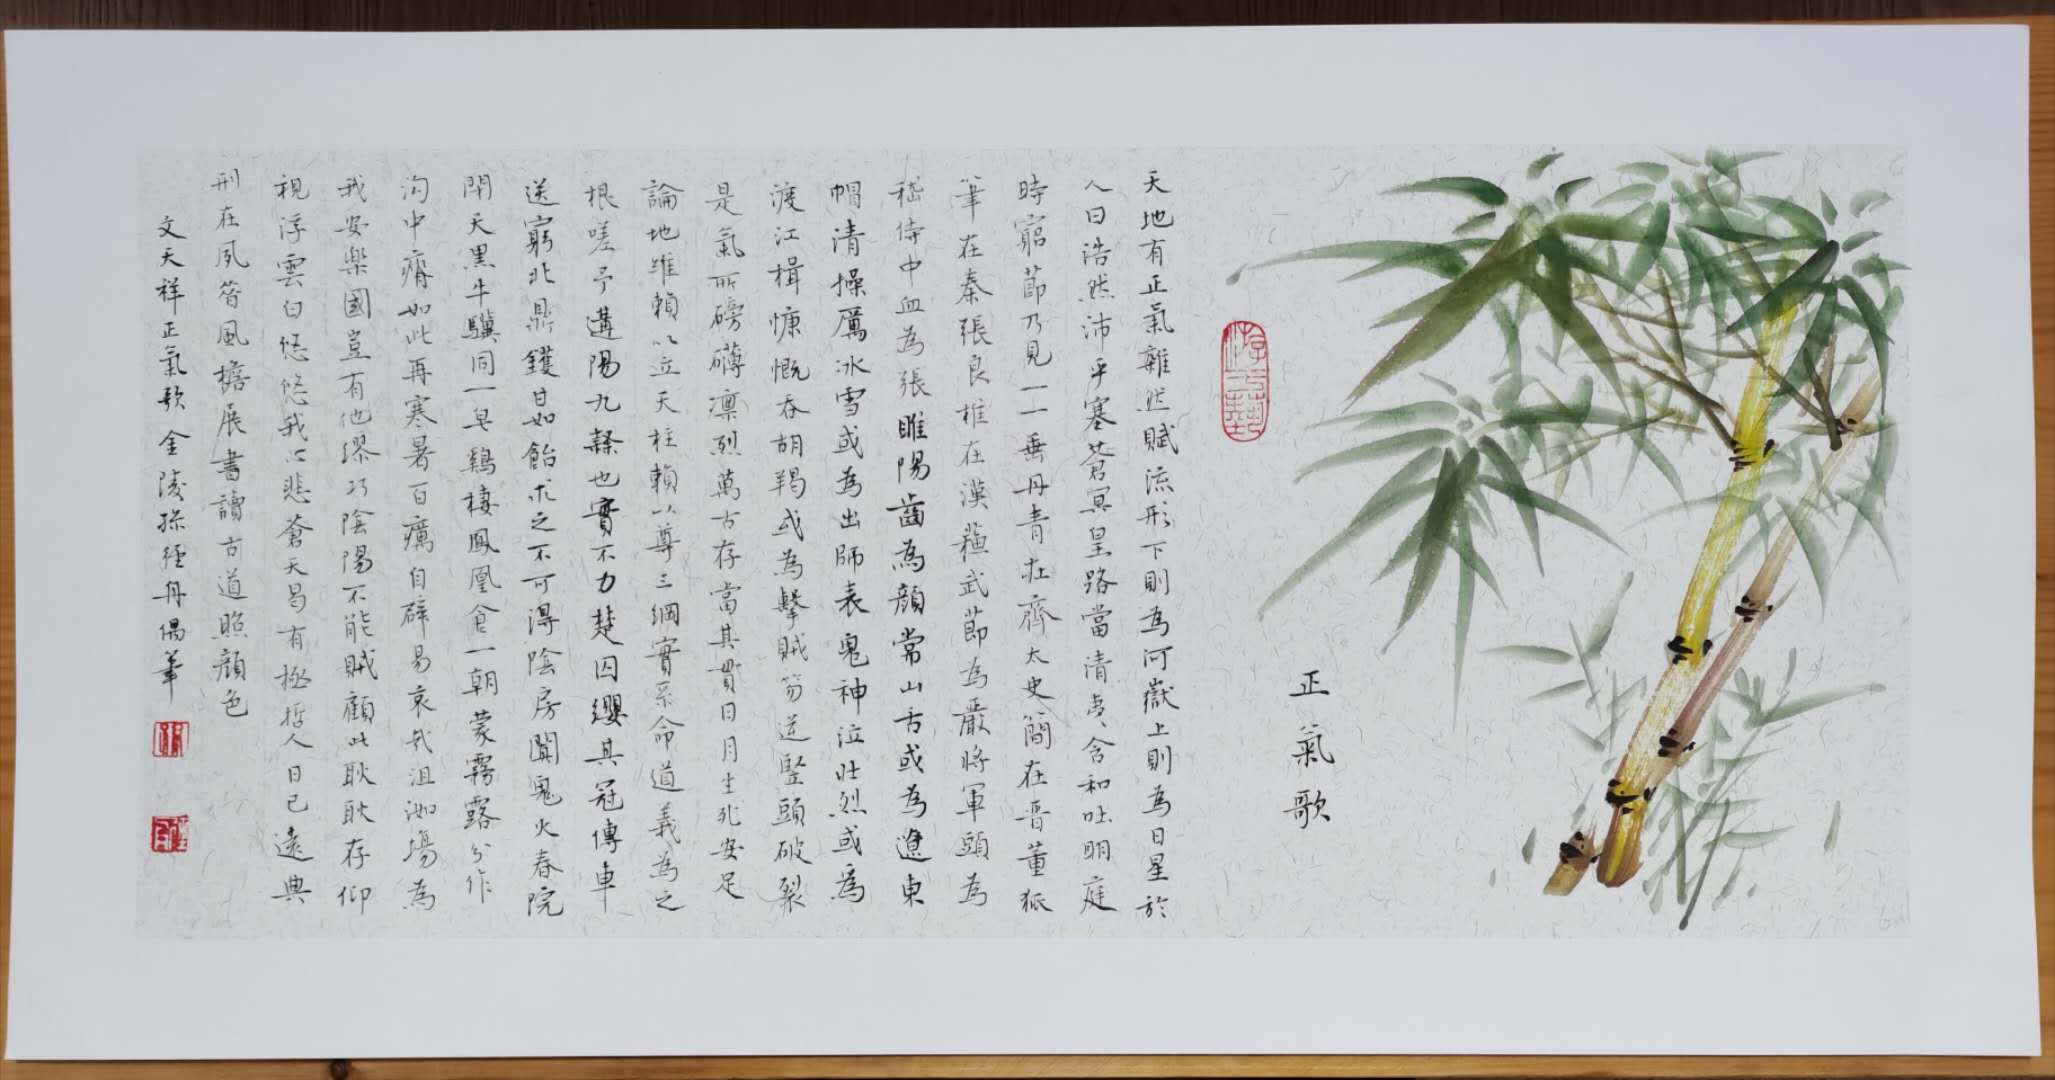 正氣歌
天地有正氣雜然賦流形下則為河嶽上則為日星於
人曰浩然沛乎塞蒼冥皇路當清夷含和吐明庭
時窮節乃見一一垂丹青在齊太史簡在晉董狐
筆在秦張良椎在漢蘇武節為嚴將軍頭為
嵇侍中血為張睢陽齒為顏常山舌或為遼東
帽清操厲冰雪或為出師表鬼神泣壯烈或為
渡江楫慷慨吞胡羯或為擊賊笏逆豎頭破裂
是氣所磅礴凜烈萬古存當其貫日月生死安足
論地維賴以立天柱賴以尊三綱實系命道義為之
根嗟予遘陽九隸也實不力楚囚纓其冠傳車
送窮北鼎鑊甘如飴求之不可得陰房闃鬼火春院
閉天黑牛驥同一皂鷄棲鳳凰食一朝蒙霧露分作
溝中瘠如此再寒暑百癘自辟易哀哉沮洳場為
我安樂國豈有他繆巧陰陽不能賊顧此耿耿存仰
視浮雲白悠悠我心悲蒼天曷有極哲人日已遠典
刑在夙昔風檐展書讀古道照顏色
文天祥正氣歌 金陵孫經丹偶筆